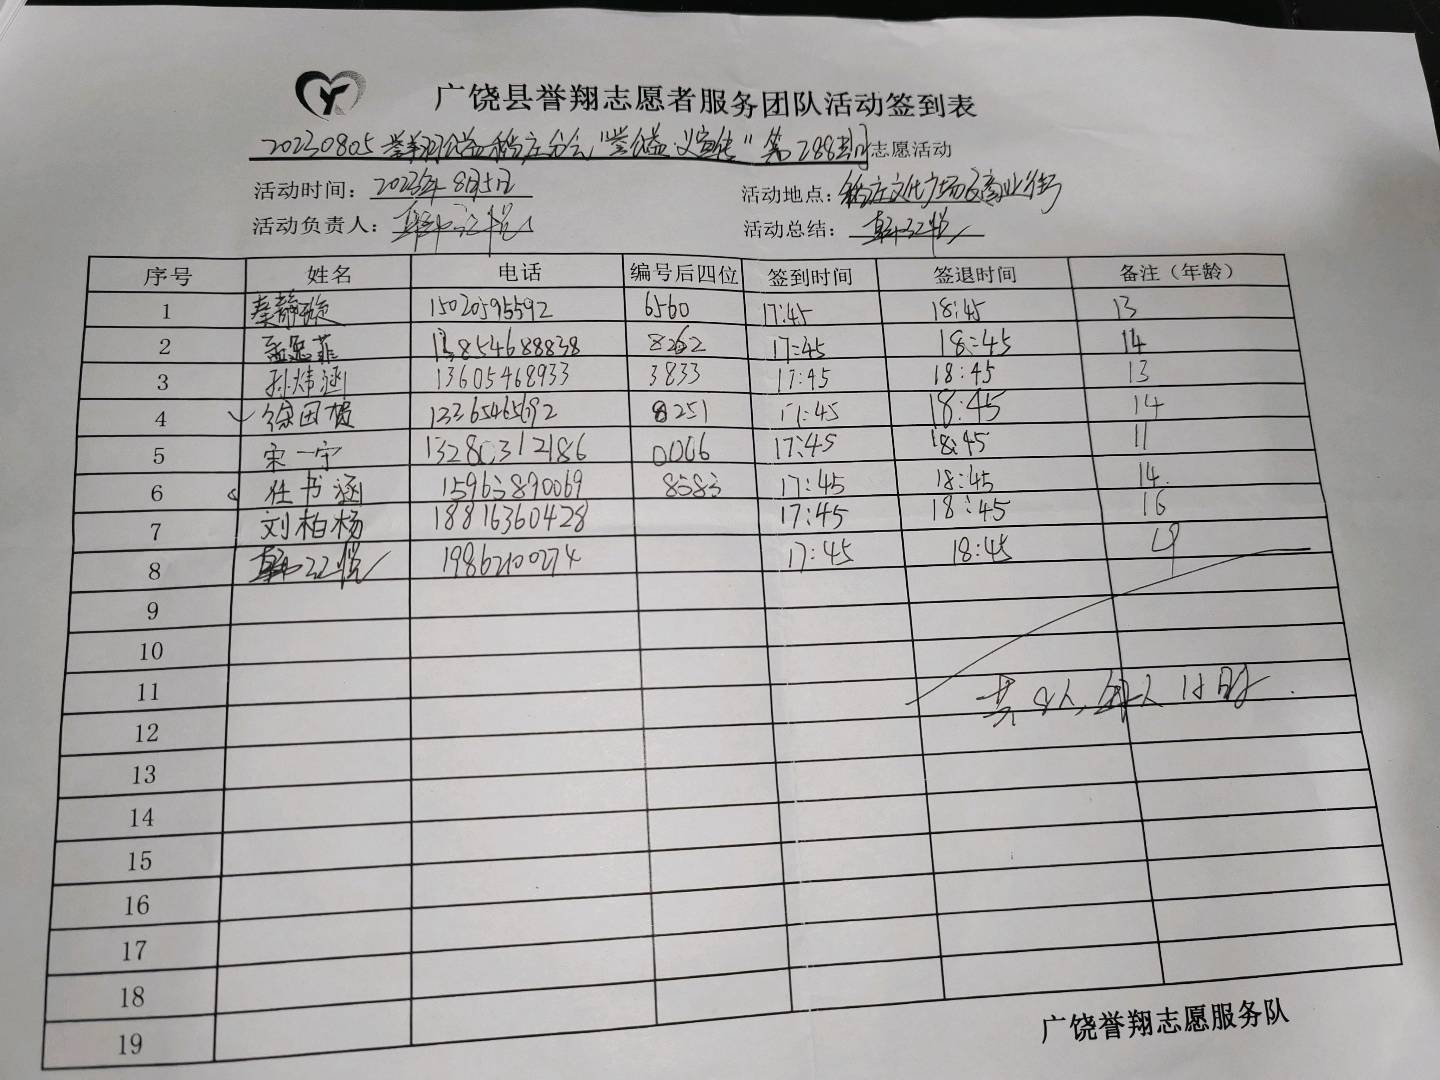 广饶县誉翔志愿者服务团队活动签到表
20230805誉翔公益稻庄分会"誉公益·义宣传"第288期志愿活动
活动时间：2023年8月5日 活动地点：稻庄文化广场及商业街
活动负责人： 活动总结：
序号 姓名 电话 编号后四位 签到时间 签退时间 备注（年龄）
1 秦静璇 15020595592 6560 17:45 18:45 13
2 孟思菲 13854688838 8262 17:45 18:45 14
3 孙炜涵 13605468933 3833 17:45 18:45 13
4 徐田 8251 17:45 18:45 14
5 宋一宁 13280312186 0006 17:45 18:45 11
6 任书涵 15963890069 8583 17:45 18:45 14
7 刘柏杨 18816360428 17:45 18:45 16
8 19862100274 17:45 18:45 19
9
10
11 共8人，每人1小时.
12
13
14
15
16
17
18
19
广饶誉翔志愿服务队